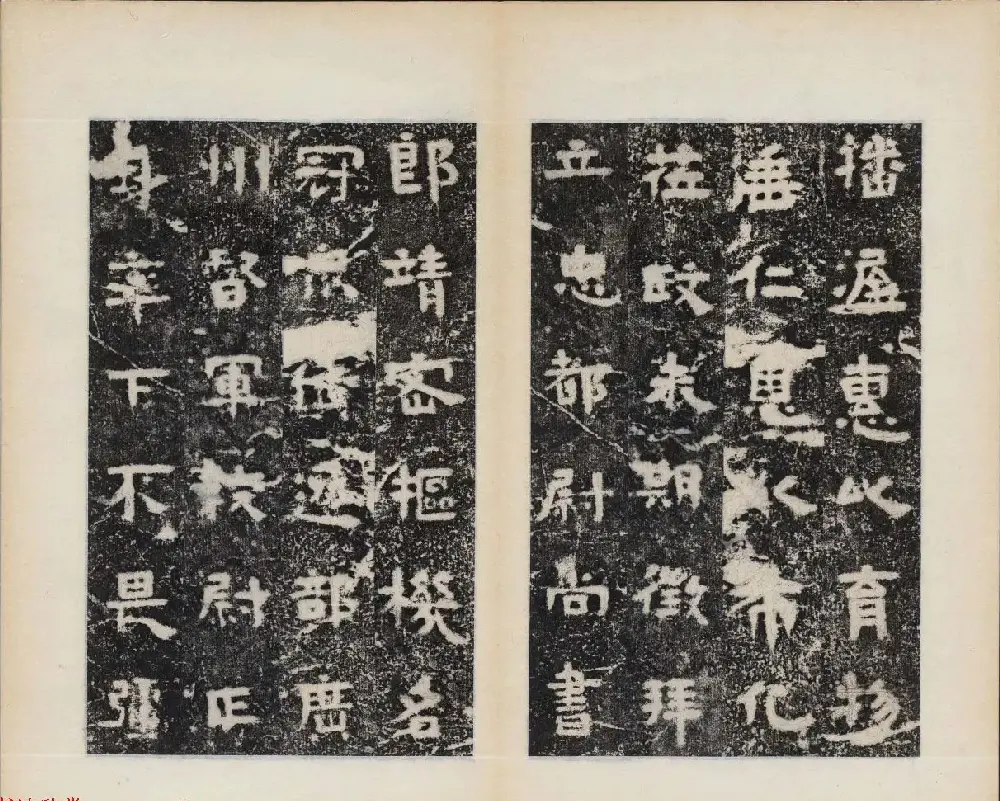 播渥惠以育物
垂仁恩以布化
莅政未期徵拜
立忠都尉尚書
郎靖密樞機名
冠衆僚遷部廣
州督軍校尉正
身率下不畏彊